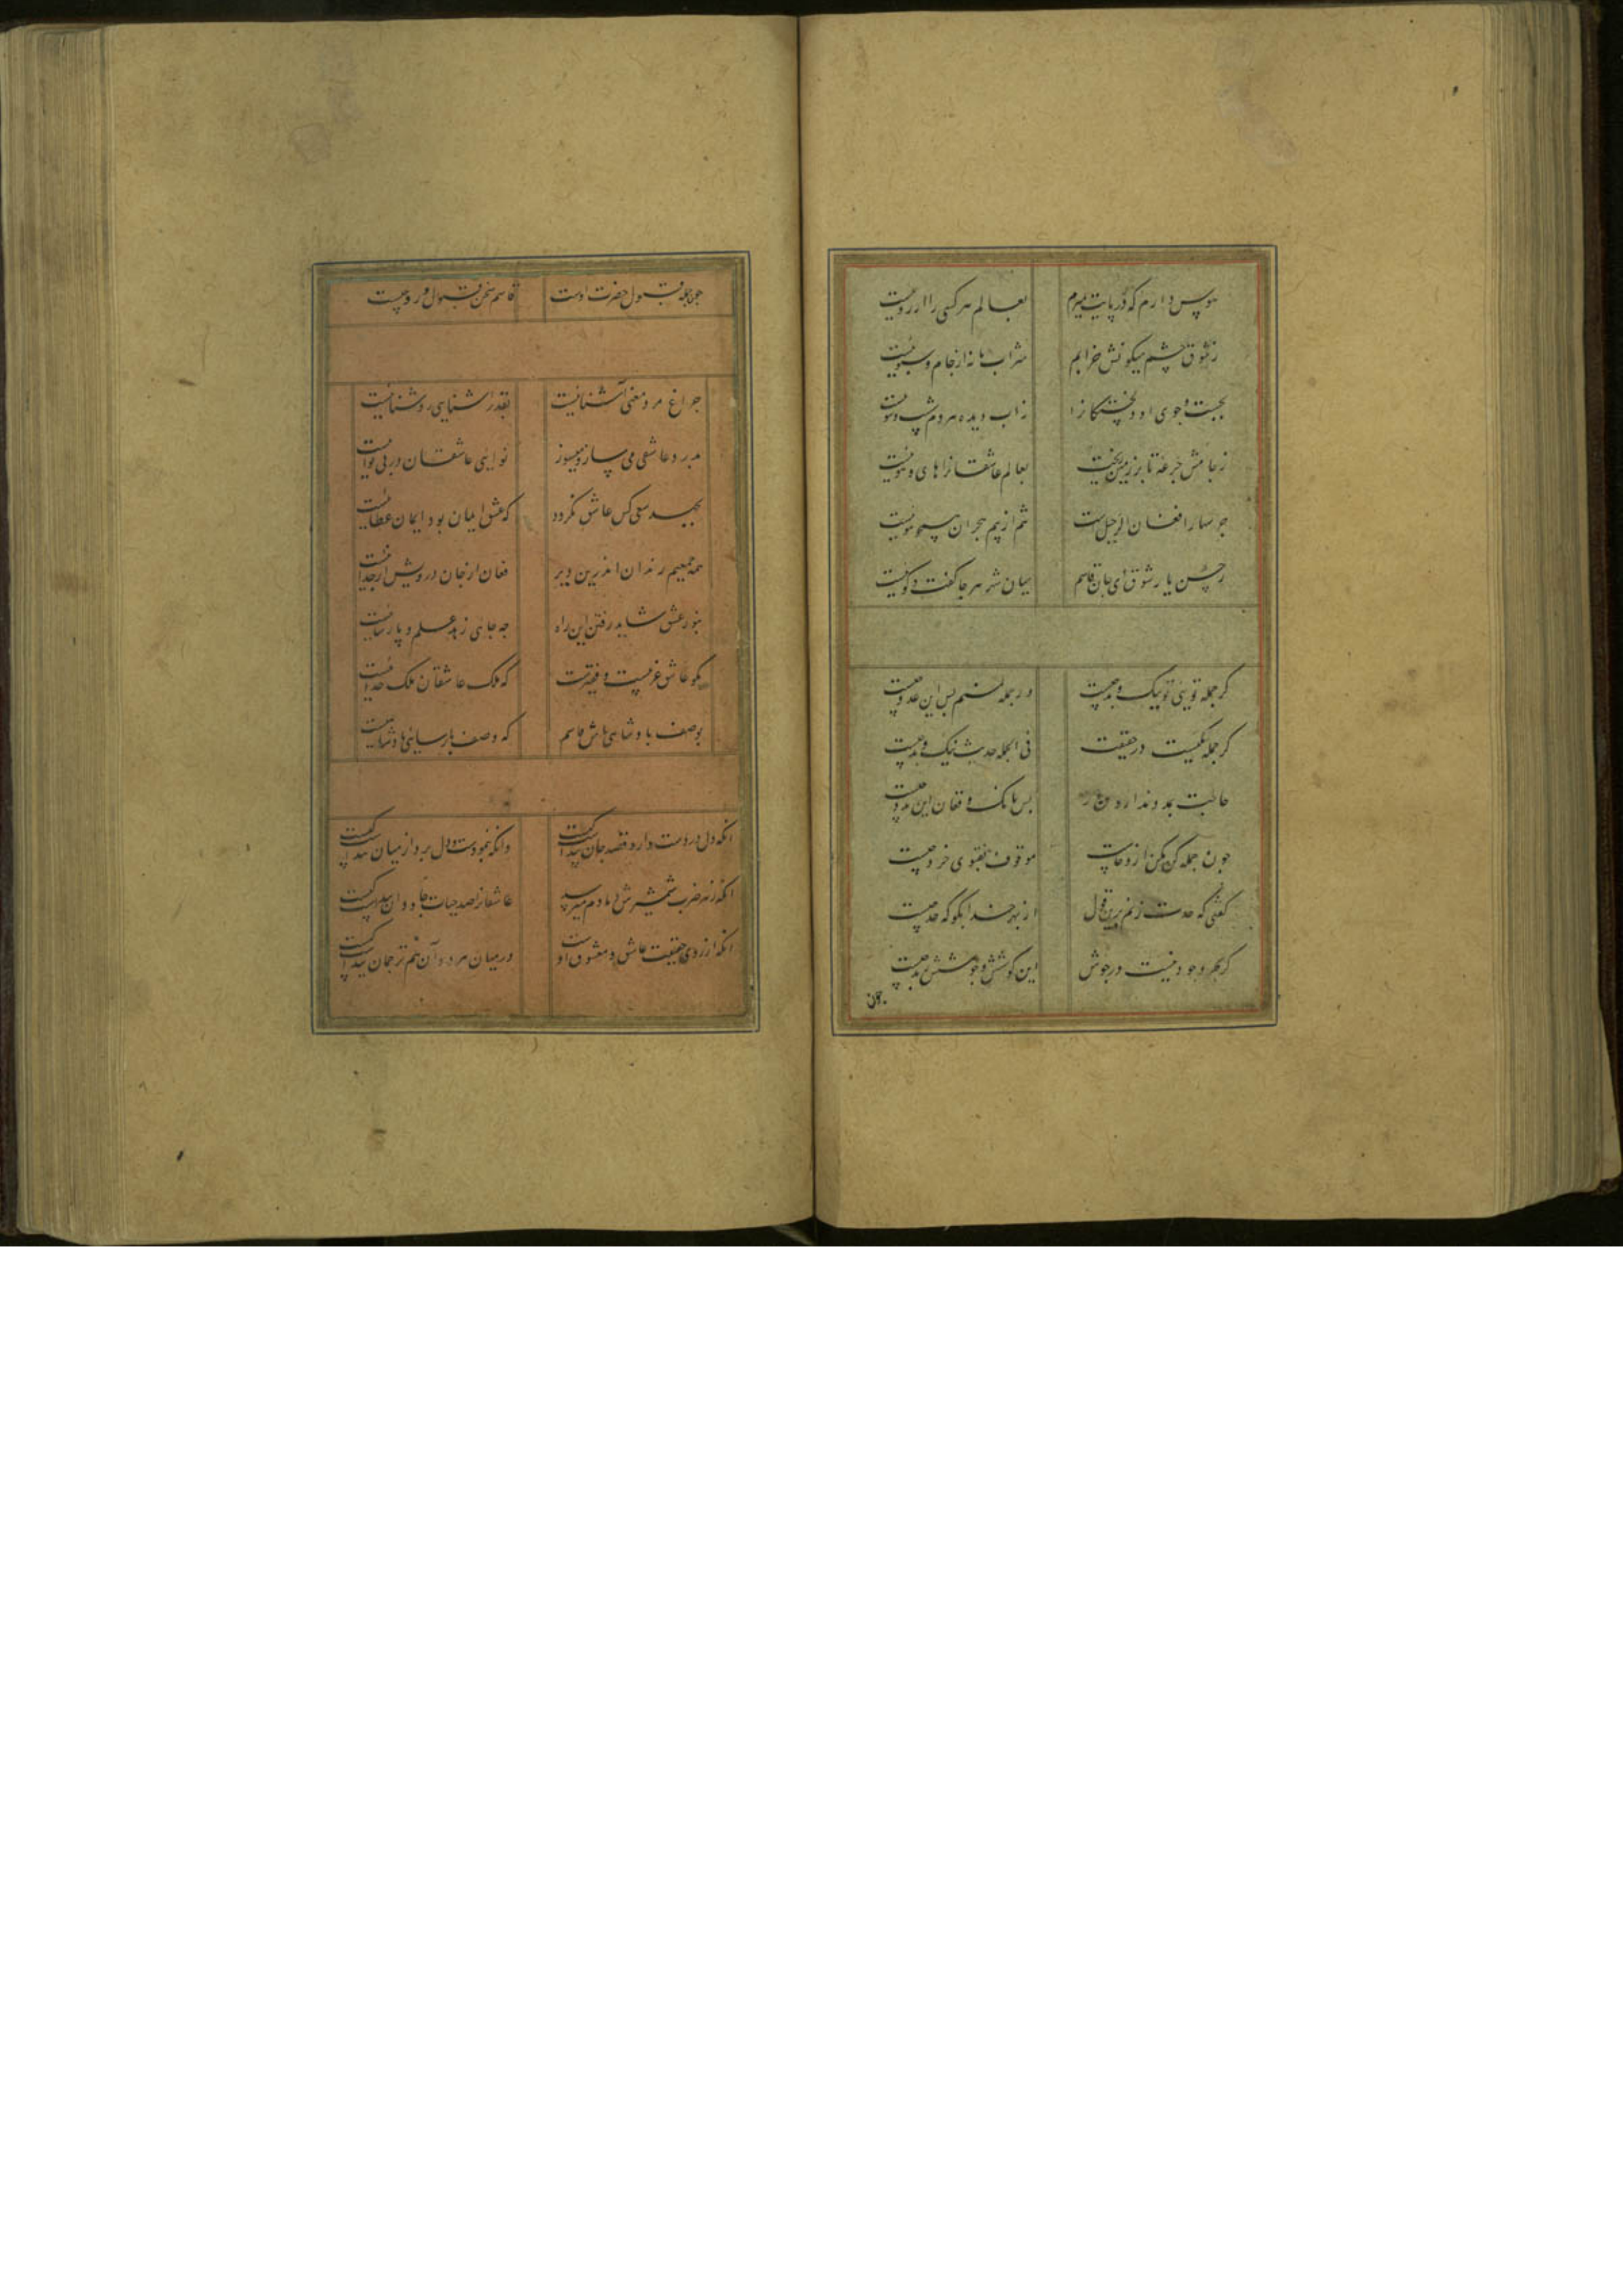 هوس دارم که در پایت بمیرم بعالم هر کسی را آرزوییست
ز شوق چشم میکونش خرابم شراب ما نه از جام و سبوییست
بجست و جوی او دلخستکانرا ز آب دیده هر دم شست و شوییست
ز جامش جرعه تا بر زمین ریخت بعالم عاشقانرا های و هوییست
جرسها را فغان از جبل است تنم از بیم هجران همچو موییست
ز حسن یار شوق ای جان قاسم بیان شد هر جا کفت و کوییست
کر جمله تویی تو نیک و بد چیست ور جمله منم بس این عدد چیست
کر جمله یکیست در حقیقت فی الجمله حدیث نیک و بد چیست
حاجت بمدد ندارد بس بانک و فغان این مدد چیست
چون جمله کن مکن ازو خاست موقوف بفتوی خرد چیست
کفتی که حدت زنم برین قول از بهر خدا بکو که حد چیست
کر بحر وجود نیست در جوش این کوشش و جوشش بمد چیست
چون
چون جمله قبول حضرت اوست قاسم سخن قبول و رد چیست
چراغ مرد معنی آشناییست بقدر آشنایی روشناییست
بدرد عاشقی می ساز و میسوز نوایی عاشقان در بی نواییست
بجهد سعی کس عاشق نکردد که عشق ایمان بود ایمان عطاییست
همه جمعیم رندان اندرین دیر فغان از جان درویش از جداییست
بنور عشق شاید رفتن این راه چه جای زهد و علم و پارساییست
مکو عاشق غریبست و فقیرست که ملک عاشقان ملک خداییست
بوصف پادشاهی باش قاسم که وصف پارسایی پادشاییست
آنکه دل در دست دارد قصد جان پیداست کیست وآنکه ننمود دست و دل برد از میان پیداست کیست
آنکه از هر ضرب شمشیرش دمادم میرسد عاشقانرا صد حیات جاودان پیداست کیست
آنکه از روی حقیقت عاشق و معشوق اوست در میان هر دو آن هم ترجمان پیداست کیست